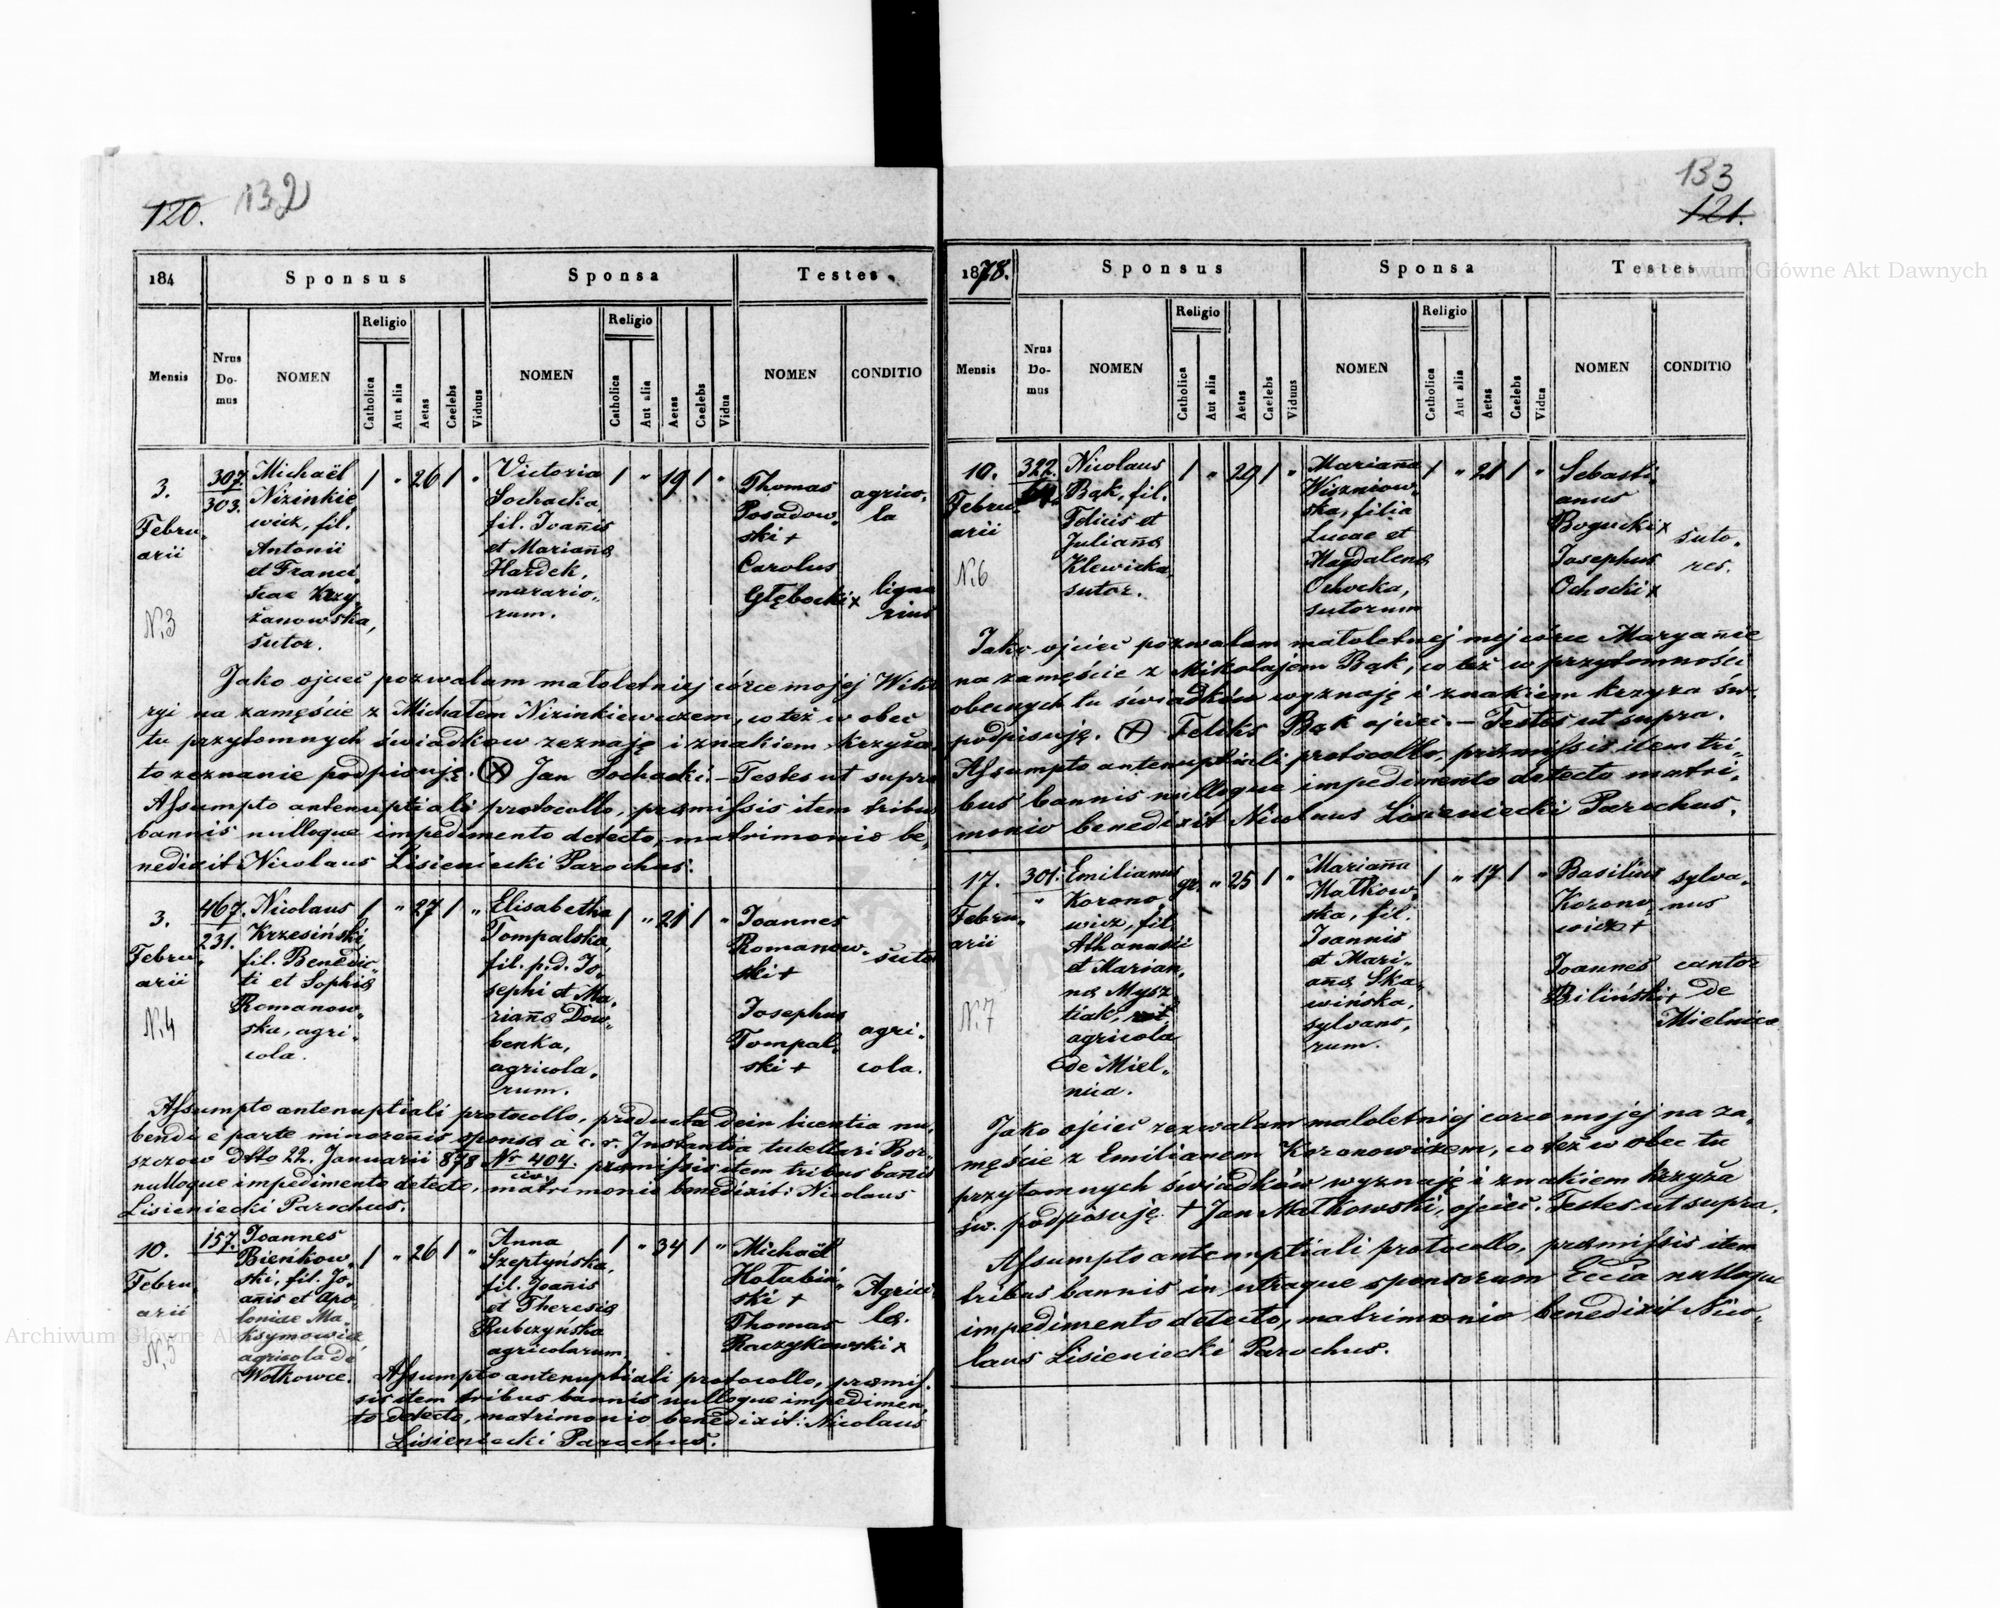 120. 132
184 Sponsus Sponsa Testes
Mensis Nrus Domus NOMEN Religio Catholica Aut alia Aetas Caelebs Viduus NOMEN Religio Catholica Aut alia Aetas Caelebs Vidua NOMEN CONDITIO
3.
Febru-
arii
N.3
307.
303.
Michaël
Nizinkie,
wicz, fil.
Antonii
et Franci,
scae Krzy
żanowska,
sutor.
1 " 26 1 "
Victoria
Sochacka,
fil. Joañis
et Mariañæ
Hardek,
murario-
rum.
1 " 19 1 "
Thomas
Posadow-
ski +
Carolus
Głębocki x
agrico-
la
ligna
rius
Jako ojciec pozwalam małoletniej córce mojej Wikto
ryi na zamęście z Michałem Nizinkiewiczem, co też w obec
tu przytomnych świadkow zeznaję i znakiem krzyża
to zeznanie podpisuję. + Jan Sochacki. – Testes ut supra
Assumpto antenuptiali protocollo, præmissis item tribus
bannis nulloque impedimento detecto, matrimonio be,
nedixit Nicolaus Lisieniecki Parochus.
3.
Febru-
arii
N.4
467.
231.
Nicolaus
Krzesiński,
fil. Benedic-
ti et Sophiæ
Romanow-
ska, agri-
cola.
1 " 27 1 "
Elisabetha
Tompalska,
fil. p.d. Jo-
sephi et Ma-
riañæ Dow-
benka,
agricola-
rum.
1 " 21 1 "
Joannes
Romanow-
ski +
Josephus
Tompal-
ski +
sutor
agri-
cola.
Assumpto antenuptiali protocollo, producta dein licentia nu,
bendi e parte minoreñis sponsæ a c. r. Instantia tutellari Bor-
szczow dtto 22. Januarii 878 No 404. præmissis item tribus bañis
civ.
nulloque impedimento detecto, matrimonio benedixit: Nicolaus
Lisieniecki Parochus.
10.
Febru-
arii
N.5
157.
Joannes
Bieńkow-
ski, fil. Jo-
añis et Apo-
loniae Ma-
ksymowicz
agricola de
Wołkowce.
1 " 26 1 "
Anna
Szeptyńska,
fil. Joañis
et Theresiæ
Rubczyńska
agricolarum
1 " 34 1 "
Michaël
Hołubiń-
ski +
Thomas
Raczykowski x
Agrico-
la.
Assumpto antenuptiali protocollo, præmis-
sis item tribus bannis nulloque impedimen,
to detecto, matrimonio benedixit: Nicolaus
Lisieniecki Parochus.
133
121.
1878. Sponsus Sponsa Testes
Mensis Nrus Domus NOMEN Religio Catholica Aut alia Aetas Caelebs Viduus NOMEN Religio Catholica Aut alia Aetas Caelebs Vidua NOMEN CONDITIO
10.
Febru-
arii
N.6
322.
Nicolaus
Bąk, fil.
Felicis et
Juliañæ
Klewicka,
sutor.
1 " 29 1 "
Mariañna
Wiszniow-
ska, filia
Lucae et
Magdalenæ
Ochocka,
sutorum
1 " 21 1 "
Sebasti-
anus
Bogucki x
Josephus
Ochocki x
suto-
res.
Jako ojciec pozwalam małoletnej mej córce Maryañie
na zamęście z Mikołajem Bąk, co też w przytomności
obecnych tu świadków wyznaję i znakiem krzyża św.
podpisuję. + Feliks Bąk ojciec. – Testes ut supra.
Assumpto antenuptiali protocollo, præmissis item tri-
bus bannis nulloque impedimento detecto matri-
monio benedixit Nicolaus Lisieniecki Parochus.
17.
Febru-
arii
N.7
301.
"
Emilianus
Korono,
wicz, fil
Athanasii
et Marian-
næ Mysz
tiak,
agricola
de Miel-
nica.
gr. " 25 1 "
Mariañna
Małkow-
ska, fil.
Joannis
et Mari-
añæ Ska-
wińska,
sylvano-
rum.
1 " 17 1 "
Basilius
Korono-
wicz +
Joannes
Biliński +
sylva-
nus
cantor
de
Mielnica
Jako ojciec zezwalam małoletniej corce mojej na za-
męście z Emilianem Koronowiczem, co też w obec tu
przytomnych świadków wyznaję i znakiem krzyża
św. podpisuję + Jan Małkowski, ojciec. Testes ut supra.
Assumpto antenuptiali protocollo, præmissis item
tribus bannis in utraque sponsorum Eccia nulloque
impedimento detecto, matrimonio benedixit Nico-
laus Lisieniecki Parochus.
Archiwum Główne Akt Dawnych